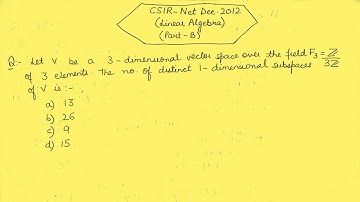 CSIR-Net Dec-2012
(Linear Algebra)
(Part-B)
Q:- Let V be a 3-dimensional vector space over the field F₃ = ℤ/3ℤ
of 3 elements the no. of distinct 1-dimensional subspaces
of V is :-
a) 13
b) 26
c) 9
d) 15